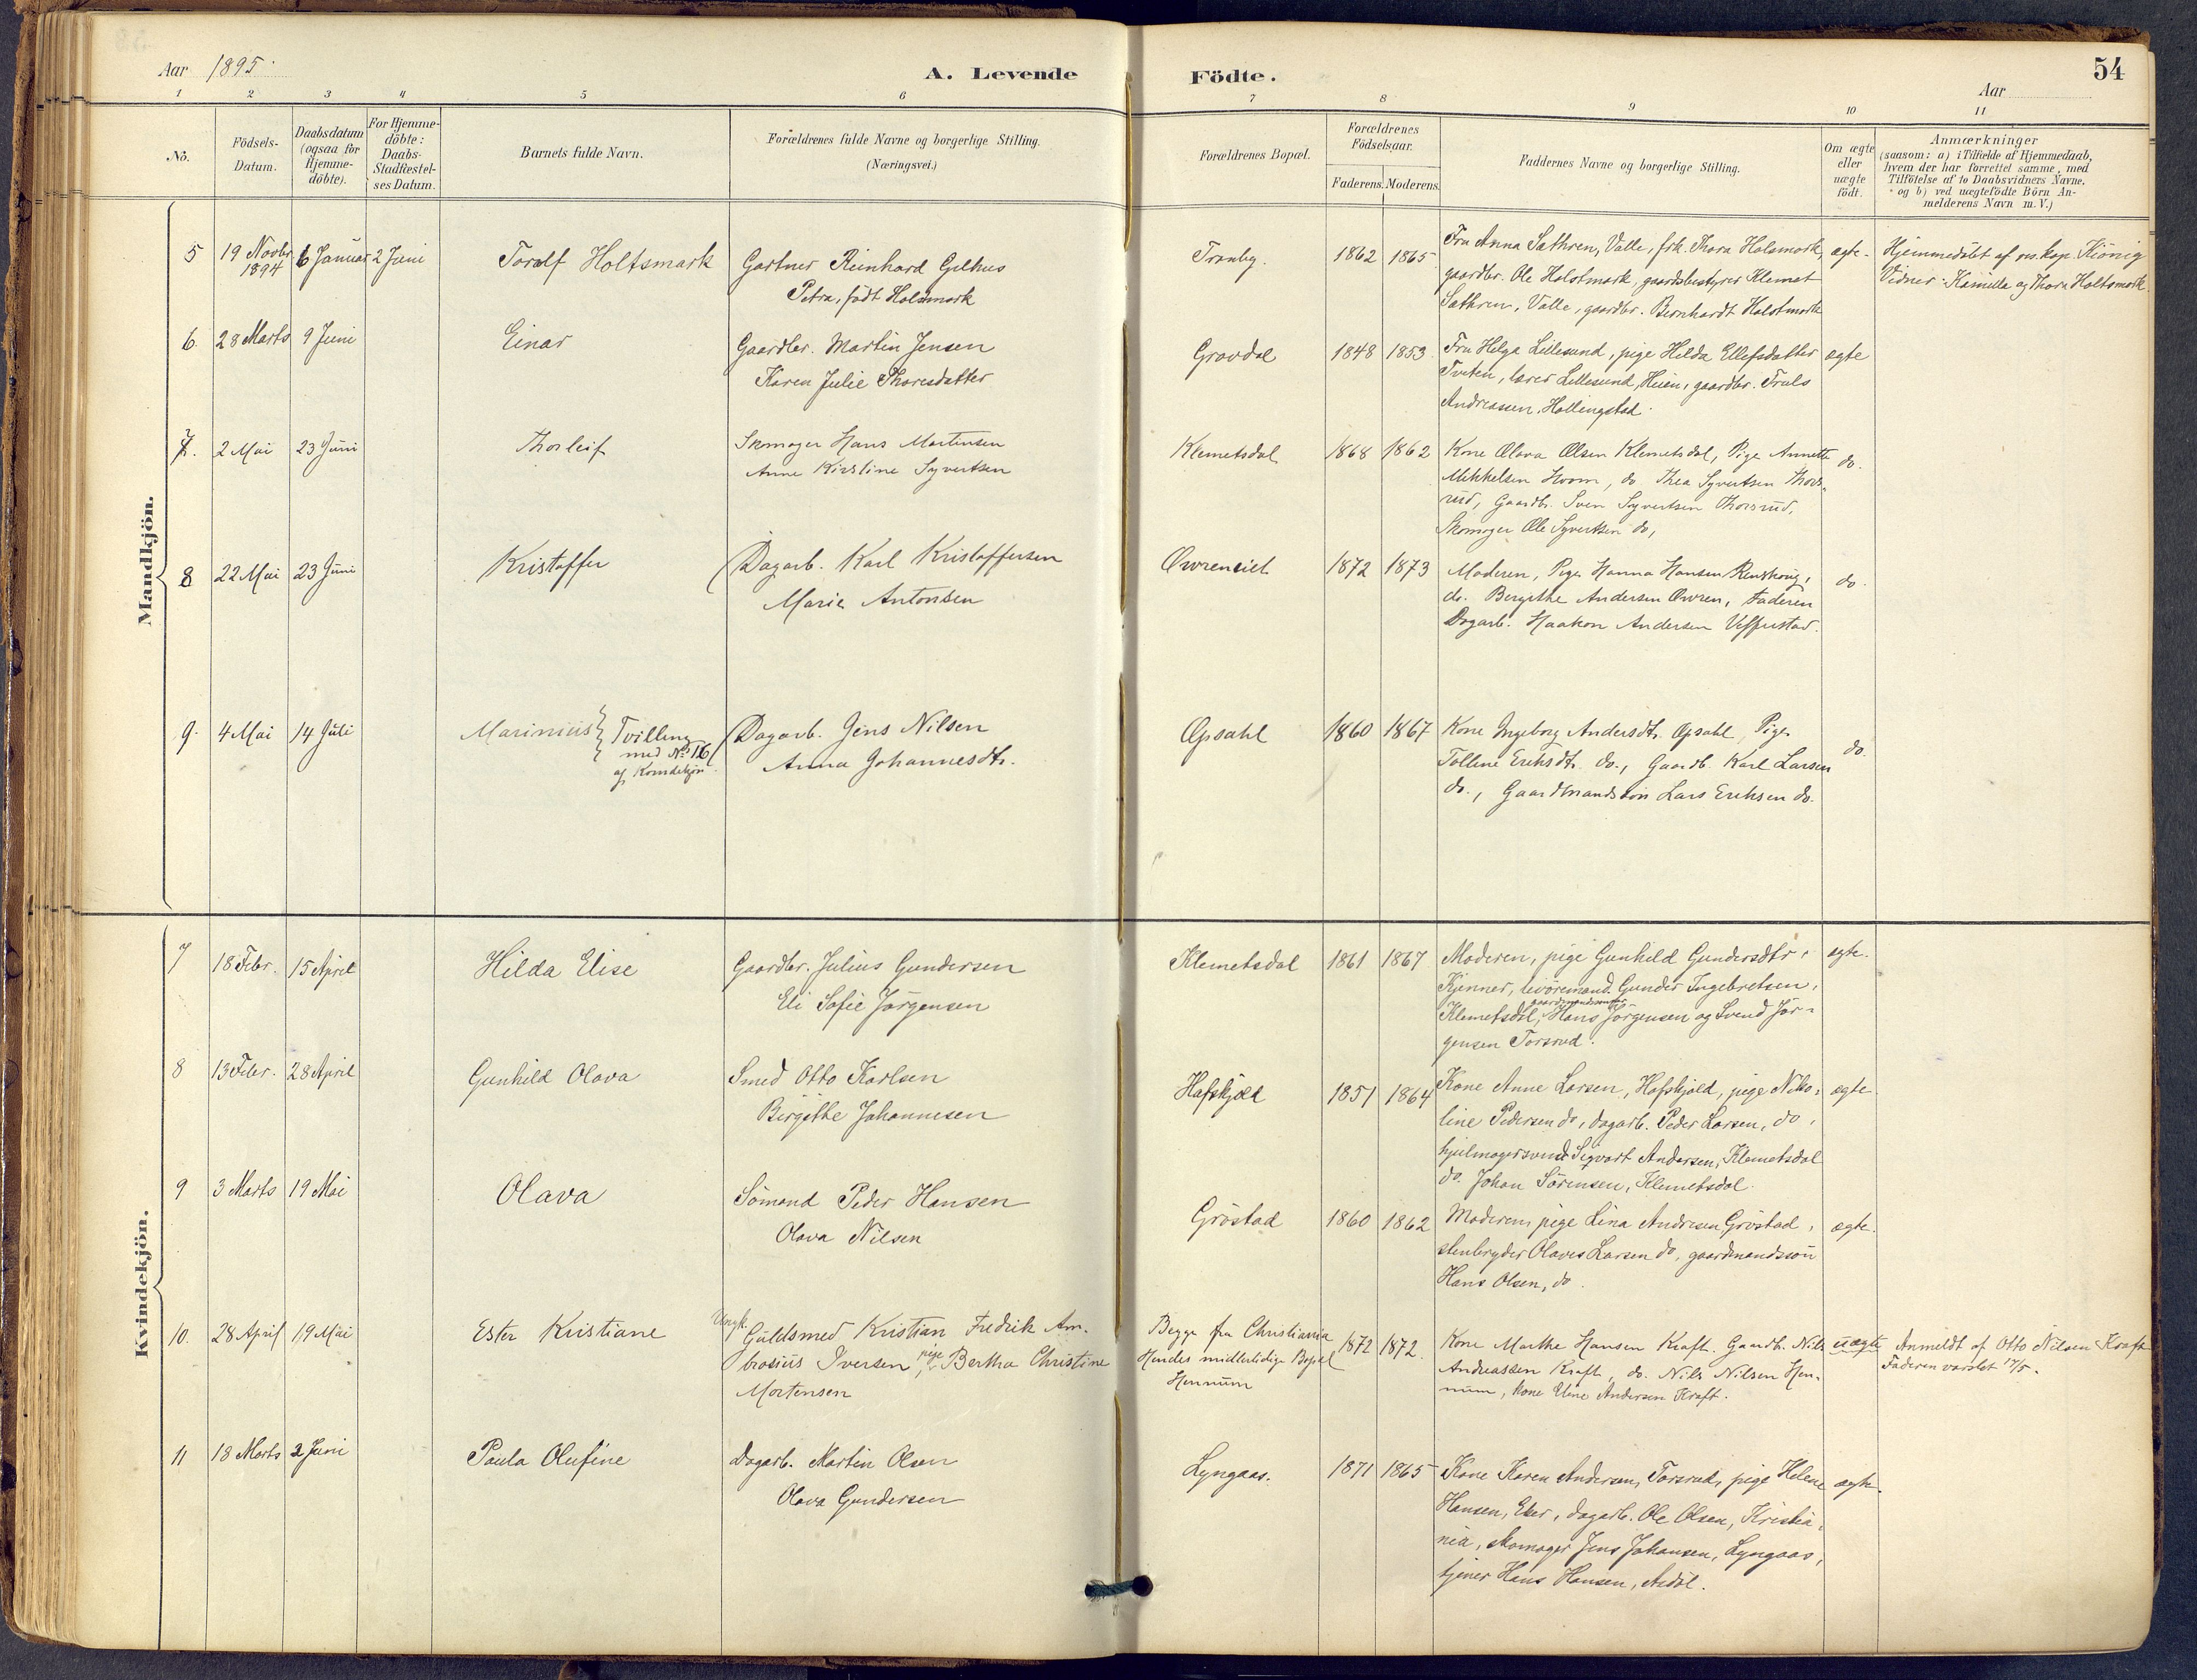 Aar 1895.
A. Levende Födte.
Aar
54
1 2 3 4 5 6 7 8 9 10 11
No.
Födsels-
Datum.
Daabsdatum
(ogsaa for
Hjemme-
döbte).
For Hjemme-
döbte:
Daabs-
Stadfæstel-
ses Datum.
Barnets fulde Navn.
Forældrenes fulde Navne og borgerlige Stilling.
(Næringsvei.)
Forældrenes Bopæl.
Forældrenes
Födselsaar.
Faderens. Moderens.
Faddernes Navne og borgerlige Stilling.
Om ægte
eller
uægte
födt.
Anmærkninger
(saasom: a) i Tilfælde af Hjemmedaab,
hvem der har forrettet samme, med
Tilföielse af to Daabsvidners Navne,
og b) ved uægtefödte Börn An-
melderens Navn m.V.)
Mandkjön.
5 19 Novbr 1894 6 Januar 2 Juni
Toralf Holtsmark
Gartner Reinhard Gilhus
Petra, født Holsmark
Tranby. 1862 1865
Fru Anna Sæthren, Valle, frk. Thora Holsmark,
gaardbr. Ole Holstmark, gaardsbestyrer Klemet
Sæthren, Valle, gaardbr. Bernhardt Holstmark
ægte.
Hjemmedøbt af res. kap. Kiönig
Vidner: Kamilla og Thora Holtsmark.
6. 28 Marts 9 Juni
Einar
Gaardbr. Martin Jensen
Karen Julie Thoresdatter
Gravdal 1848 1853.
Fru Helga Lillesund, pige Hilda Ellefsdatter
Tveten, lærer Lillesund, Heien, gaardbr. Truls
Andreassen, Hallingstad.
ægte
7. 2 Mai 23 Juni
Thorleif
Skomager Hans Martinsen
Anne Kirstine Syvertsen
Klemetsdal 1868 1862
Kone Olava Olsen Klemetsdal, Pige Annette
Mikkelsen Hoom, do Thea Syvertsen Thors-
rud, Gaardb. Sven Syvertsen Thorsrud,
Skomager Ole Syvertsen do,
do.
8 22 Mai 23 Juni
Kristoffer
Dagarb. Karl Kristoffersen
Marie Antonsen
Øvreneiet 1872 1873
Moderen, Pige Hanna Hansen Renskoug,
do. Bergithe Andersen Øvren, Faderen
Dagarb. Haakon Andersen Veffrustad.
do.
9. 4 Mai 14 Juli
Marinius Tvilling
med No 16
af Kvindekjøn.
Dagarb. Jens Nilsen
Anna Johannesdtr.
Opsahl 1860 1867
Kone Ingeborg Andersdtr. Opsahl, Pige
Tolline Eriksdtr. do., Gaardb. Karl Larsen
do., Gaardmandssön Lars Eriksen do.
do.
Kvindekjön.
7 18 Febr. 15 April
Hilda Elise
Gaardbr. Julius Gundersen
Eli Sofie Jørgensen
Klemetsdal 1861 1867
Moderen, pige Gunhild Gundersdtr,
Kjinner, livöremand Gunder Ingebretsen,
gaardmandssønner
Klemetsdal, Hans Jørgensen og Svend Jør-
gensen Torsrud.
ægte.
8 13 Febr. 28 April
Gunhild Olava
Smed Otto Karlsen
Birgithe Johannesen
Hafskjold 1851 1864
Kone Anne Larsen, Hafskjold, pige Niko-
line Pedersen do, dagarb. Peder Larsen, do,
hjulmagersvend Sigvart Andersen, Klemetsdal
do. Johan Sörensen, Klemetsdal.
ægte
9 3 Marts 19 Mai
Olava
Sömand Peder Hansen
Olava Nilsen
Gröstad 1860 1862
Moderen, pige Lina Andresen Gröstad,
stenbryder Olaves Larsen do, gaardmandssön
Hans Olsen, do.
ægte.
10. 28 April 19 Mai
Ester Kristiane
Ungk.
Guldsmed Kristian Fredrik Am-
brosius Iversen, pige Bertha Christine
Mortensen
Begge fra Christiania
Hendes midlertidige Bopæl
Hennum
1872 1872.
Kone Marthe Hansen Kraft. Gaardb. Nils
Andreassen Kraft, do. Nils Nilsen Hen-
num, Kone Eline Andersen Kraft.
uægte
Anmeldt af Otto Nilsen Kraft
Faderen varslet 17/5.
11 18 Marts 2 Juni
Paula Olufine
Dagarb. Martin Olsen
Olava Gundersen
Lyngaas. 1871 1865
Kone Karen Andersen, Torsrud, pige Helene
Hansen, Eker, dagarb. Ole Olsen, Kristia-
nia, skomager Jens Johansen, Lyngaas,
tjener Hans Hansen, Asdöl.
ægte.